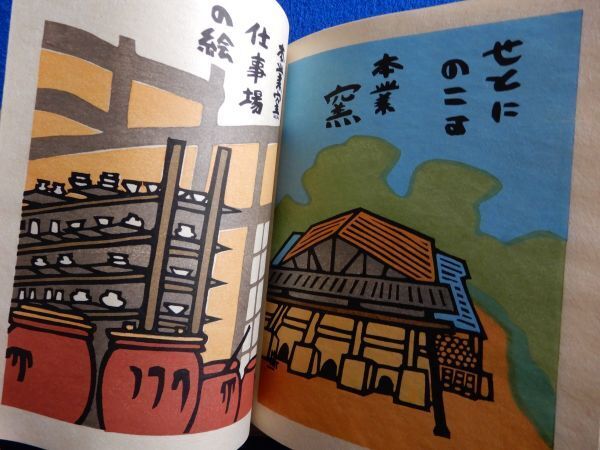 せとに
のこる
本業
窯
本業窯
仕事場
の絵